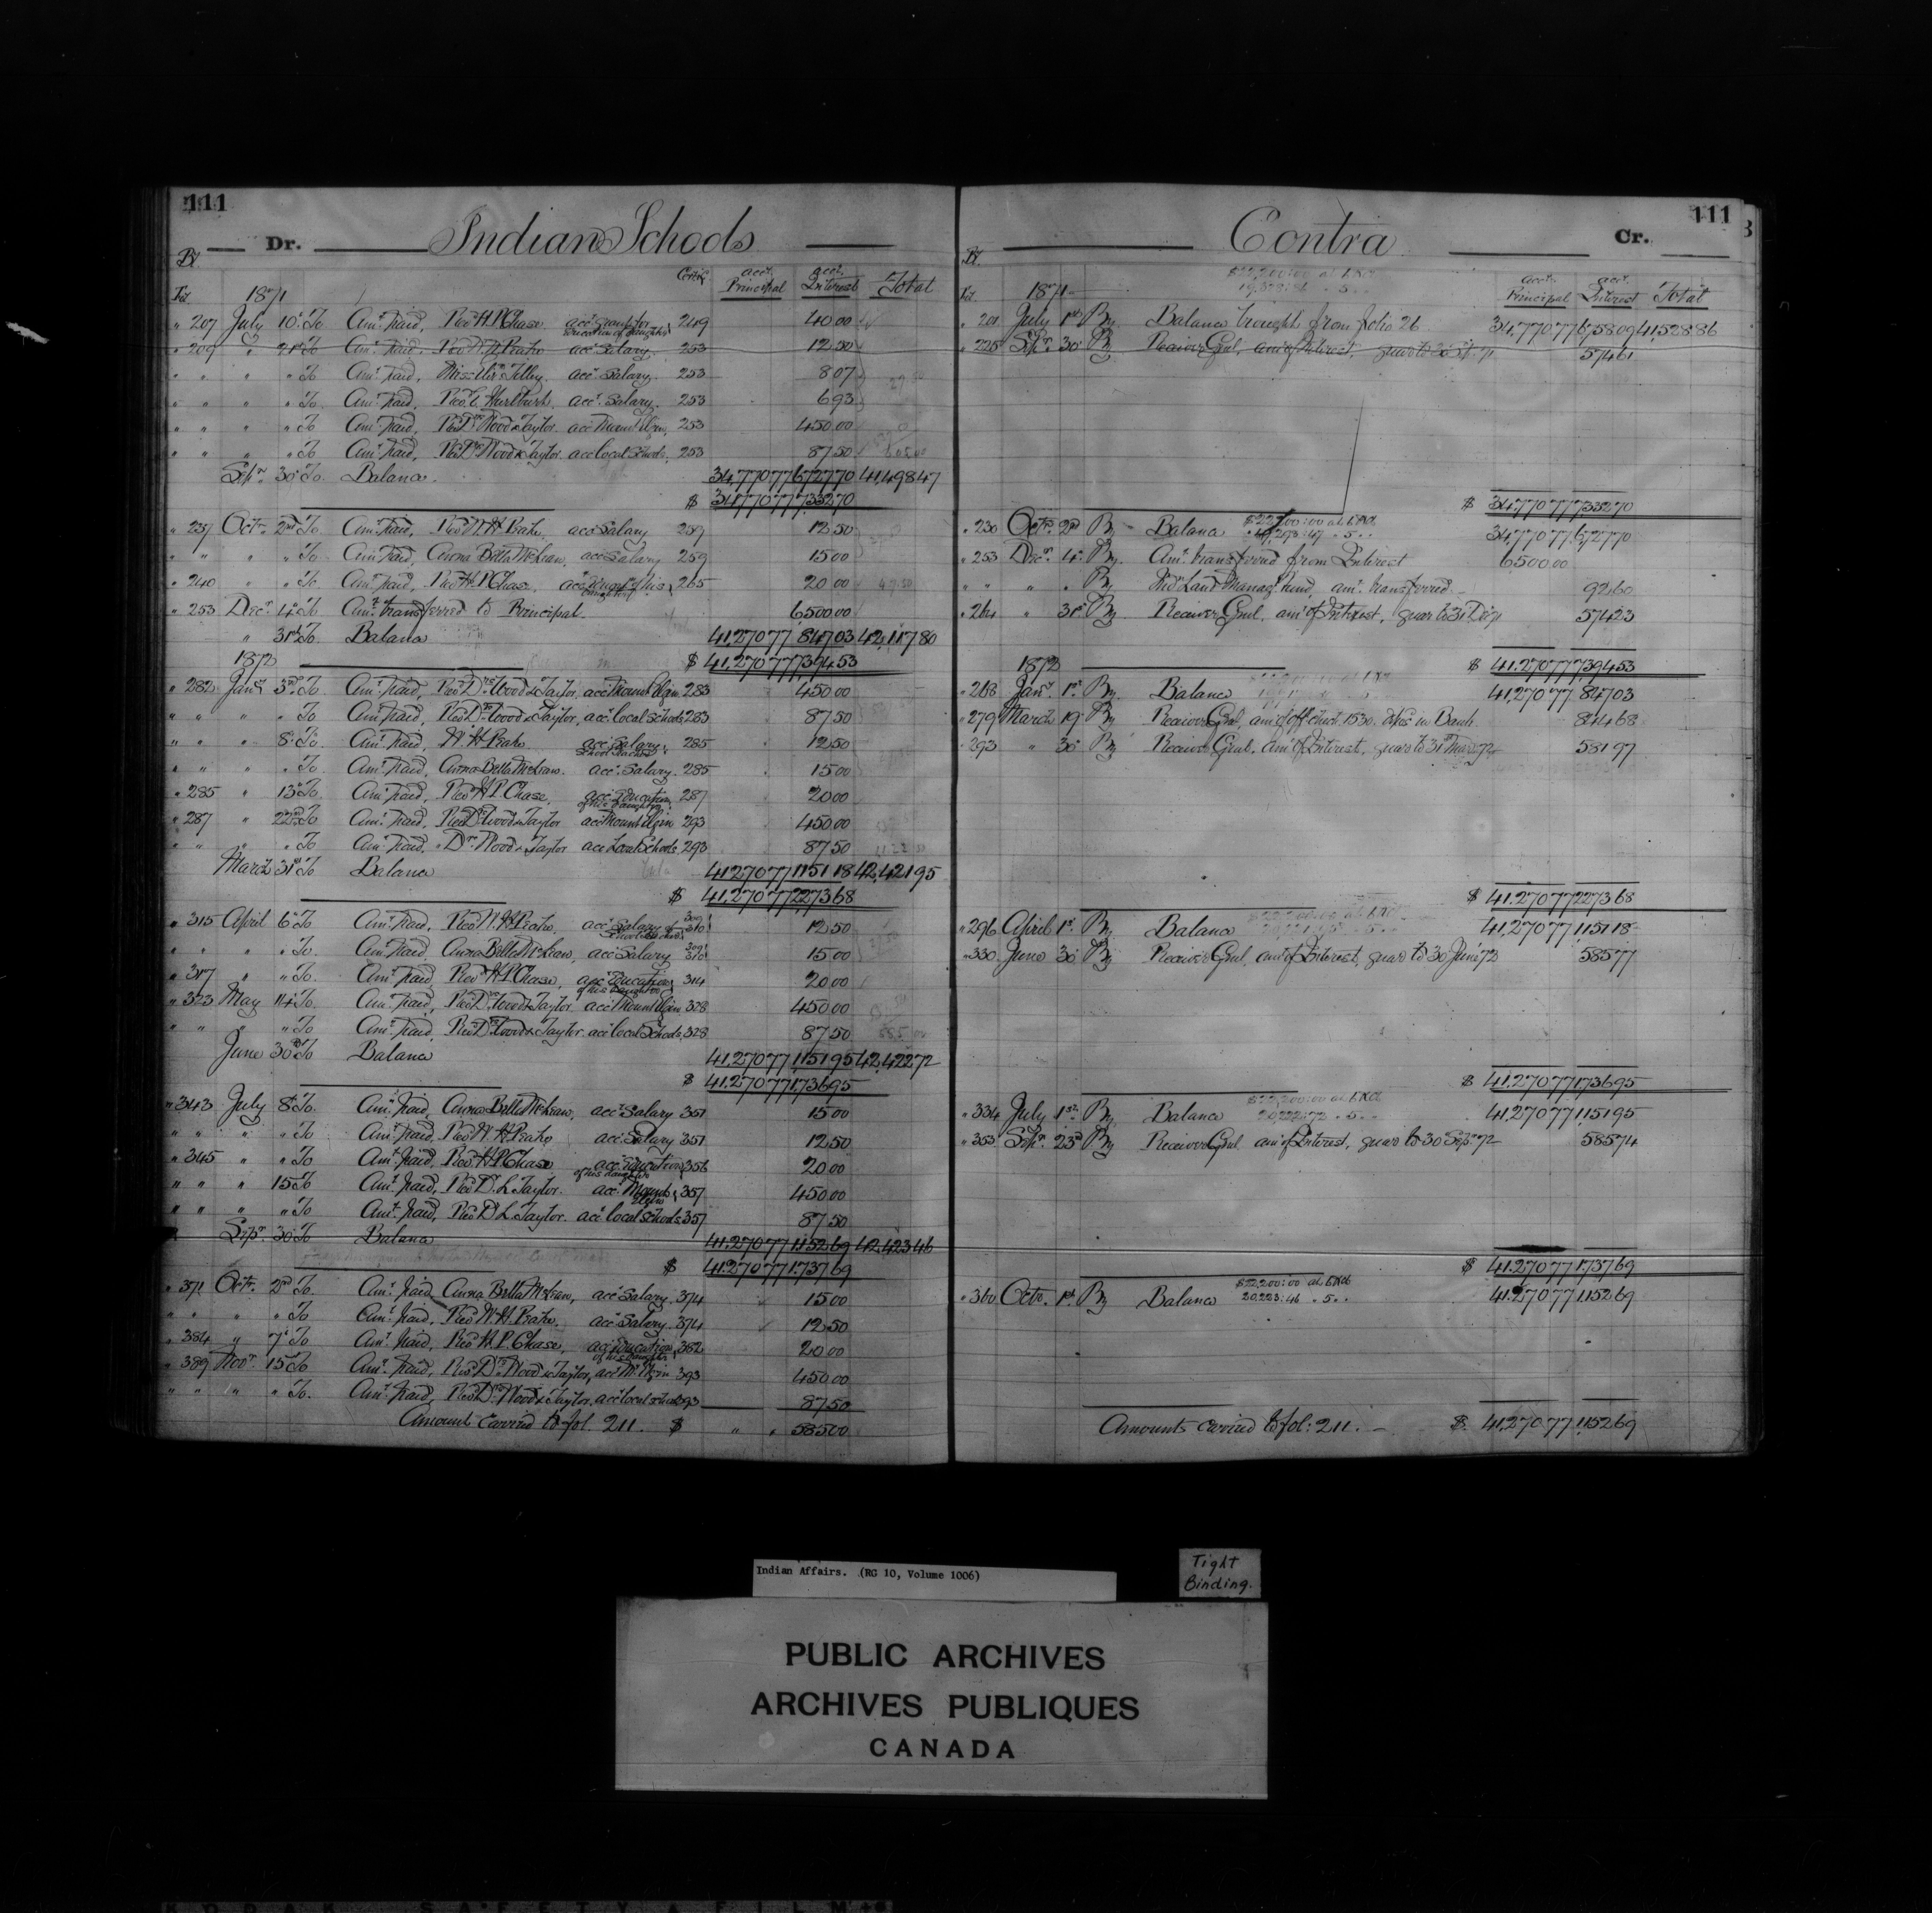 111
Dr. Indian Schools
Bl. Fol. 1871 Certif. acct. Principal acct. Interest Total
" 207 July 10th To Amt. paid, Revd. H. P. Chase acct. grant for education of daughter 249 40 00
" 209 " 21st To Amt. paid, Revd. W. H. acct. Salary 253 12 50
" " " " To Amt. paid, Miss acct. Salary 253 8 07
" " " " To Amt. paid, Revd. Hurlburt, acct. Salary 253 6 93
" " " " To Amt. paid, Revd. Drs. Wood & Taylor acct. Mount Elgin, 253 450 00
" " " " To Amt. paid, Revd. Drs. Wood & Taylor acct local Schools, 253 87 50
Sepr. 30th To Balance 34,770 77 6,727 70 41,498 47
$ 34,770 77 7,332 70
" 237 Octr. 2nd To Amt. paid, Revd. W. H. acct. Salary 257 12 50
" " " " To Amt. paid, Anna Bella McLean, acct. Salary 259 15 00
" 240 " " To Amt. paid, Revd. H. P. Chase, acct. of his daughter 265 20 00
" 253 Decr. 4th To Amt. transferred to Principal 6,500 00
" 31st To Balance 41,270 77 847 03 42,117 80
1872 $ 41,270 77 7,394 53
" 282 Jany. 3rd To Amt. paid, Revd. Drs. Wood & Taylor, acct Mount Elgin 283 450 00
" " " " To Amt. paid, Revd. Drs. Wood & Taylor, acct. local schools 283 87 50
" " " 8th To Amt. paid, W. H. acct. Salary 285 12 50
" " " " To Amt. paid, Anna Bella McLean acct. Salary 285 15 00
" 285 " 13th To Amt. paid, Revd. H. P. Chase, acct. Education of his daughter 287 20 00
" 287 " 22nd To Amt. paid, Revd. Drs. Wood & Taylor acct Mount Elgin 293 450 00
" " " " To Amt. paid, Drs. Wood & Taylor acct Local Schools 293 87 50
March 31st To Balance 41,270 77 1,151 18 42,421 95
$ 41,270 77 2,273 68
" 315 April 6th To Amt. paid, Revd. W. H. acct. Salary 310 12 50
" " " " To Amt. paid, Anna Bella McLean, acct. Salary 310 15 00
" 317 " " To Amt. paid Revd. H. P. Chase, acct. Education of his daughter 314 20 00
" 323 May 14th To Amt. paid, Revd. Drs. Wood & Taylor acct Mount Elgin 328 450 00
" " " " To Amt. paid, Revd. Drs. Wood & Taylor acct local Schools 328 87 50
June 30th To Balance 41,270 77 1,151 95 42,422 72
$ 41,270 77 1,736 95
" 343 July 8th To Amt. paid, Anna Bella McLean, acct. Salary 351 15 00
" " " " To Amt. paid, Revd. W. H. acct. Salary 351 12 50
" 345 " " To Amt. paid, Revd. H. P. Chase acct. Education of his daughter 356 20 00
" " " 15th To Amt. paid, Revd. Dr. L. Taylor acct. Mount Elgin 357 450 00
" " " " To Amt. paid, Revd. Dr. L. Taylor acct local schools 357 87 50
Sepr. 30th To Balance 41,270 77 1,152 69 42,423 46
$ 41,270 77 1,737 69
" 371 Octr. 2nd To Amt. paid, Anna Bella McLean, acct. Salary 374 15 00
" " " " To Amt. paid, Revd. W. H. acct. Salary 374 12 50
" 384 " 7th To Amt. paid, Revd. H. P. Chase, acct Education of his daughter 382 20 00
" 389 Novr. 15th To Amt. paid, Revd. Drs. Wood & Taylor, acct Mt. Elgin 393 450 00
" " " " To Amt. paid, Revd. Drs. Wood & Taylor, acct local schools 393 87 50
Amount carried to fol. 211. $ " " 585 00
111
Contra Cr.
Bl. Fol. 1871 acct. Principal acct. Interest Total
" 201 July 1st By Balance brought from folio 26 34,770 77 6,758 09 41,528 86
" 225 Sepr. 30th By Receiver Genl. amt. of Interest, quar to 30 Sept 71 574 61
$ 34,770 77 7,332 70
" 230 Octr. 2nd By Balance 34,770 77 6,727 70
" 253 Decr. 4th By Amt. transferred from Interest 6,500 00
" " " " By Ind. Land Managt. Fund, amt. transferred 92 60
" 264 " 31st By Receiver Genl. amt. of Interest, quar to 31 Dec 71 574 23
1872 $ 41,270 77 7,394 53
" 268 Jany. 1st By Balance 41,270 77 847 03
" 279 March 19th By Receiver Genl. 1530 in Bank 844 68
" 293 " 30th By Receiver Genl. amt. of Interest, quar to 31st March 72 581 97
$ 41,270 77 2,273 68
" 296 April 1st By Balance 41,270 77 1,151 18
" 330 June 30th By Receiver Genl. amt. of Interest, quar to 30 June 72 585 77
$ 41,270 77 1,736 95
" 334 July 1st By Balance $22,200:00 20,222:72 " 5 " " 41,270 77 1,151 95
" 353 Sepr. 23rd By Receiver Genl. amt. of Interest, quar to 30 Sepr. 72 585 74
$ 41,270 77 1,737 69
" 360 Octr. 1st By Balance $22,200:00 20,223:46 " 5 " " 41,270 77 1,152 69
Amounts carried to fol: 211. $ 41,270 77 1,152 69
Indian Affairs. (RG 10, Volume 1006)
Tight
Binding.
PUBLIC ARCHIVES
ARCHIVES PUBLIQUES
CANADA
KODAK SAFETY FILM